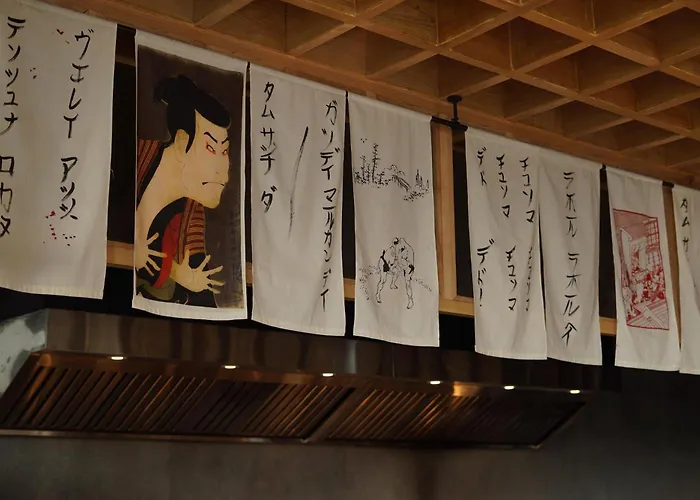 ヴエレイ アツメ
テンツュナ ロカタ
ガンデイ マルガンデイ
タムサチ ダ
チユソマ
チユソマ チユソマ
デド デド!
ラホール ラホールイ
タムサ